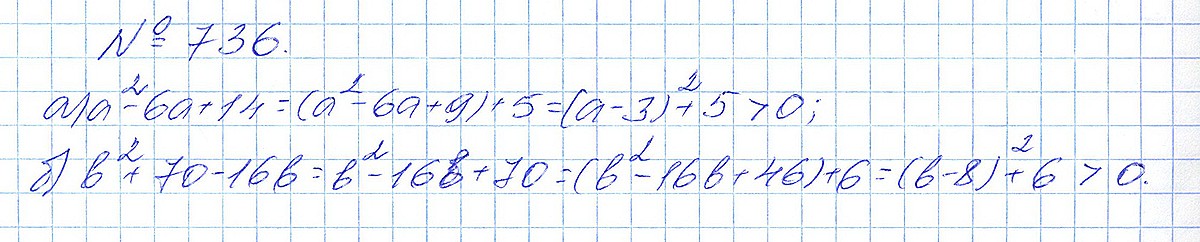 № 736.
а) a² - 6a + 14 = (a² - 6a + 9) + 5 = (a - 3)² + 5 > 0;
б) b² + 70 - 16b = b² - 16b + 70 = (b² - 16b + 46) + 6 = (b - 8)² + 6 > 0.